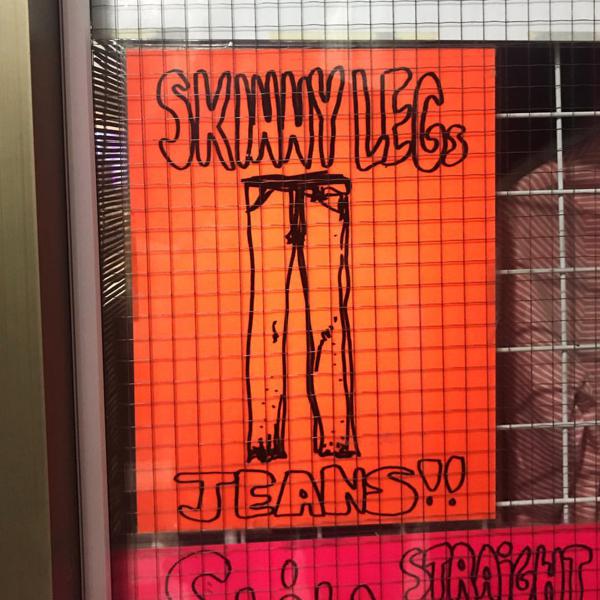 SKINNY LEGs
JEANS!!
STRAiGHT